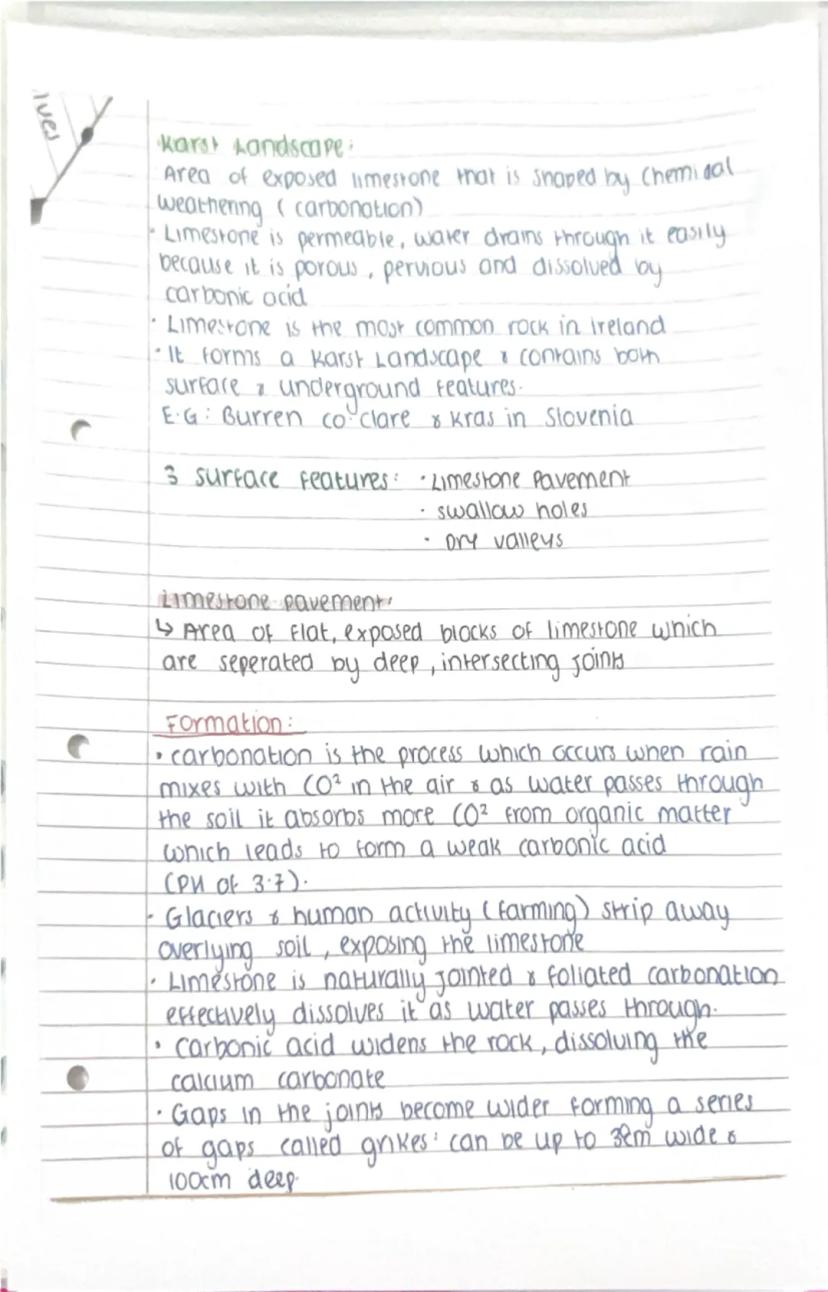 ives
Karst Landscape:
Area of exposed limestone that is shaped by chemical
weathering (carbonation)
· Limestone is permeable, water drains through it easily
because it is porous, pervious and dissolved by
carbonic acid
· Limestone is the most common rock in Ireland
· It forms a Karst Landscape & contains both
surface & underground features.
E.G: Burren co. clare & Kras in Slovenia
3 surface features: · Limestone Pavement
· swallow holes
· Dry valleys
Limestone pavement:
↳ Area of flat, exposed blocks of limestone which
are seperated by deep, intersecting joints
Formation:
· carbonation is the process which occurs when rain
mixes with CO² in the air & as water passes through
the soil it absorbs more CO² from organic matter
which leads to form a weak carbonic acid
(PH of 3.7).
· Glaciers & human activity (farming) strip away
overlying soil, exposing the limestone
· Limestone is naturally jointed & foliated carbonation
effectively dissolves it as water passes through.
· Carbonic acid widens the rock, dissolving the
calcium carbonate
· Gaps in the joints become wider forming a series
of gaps called grikes: can be up to wide &
100cm deep.